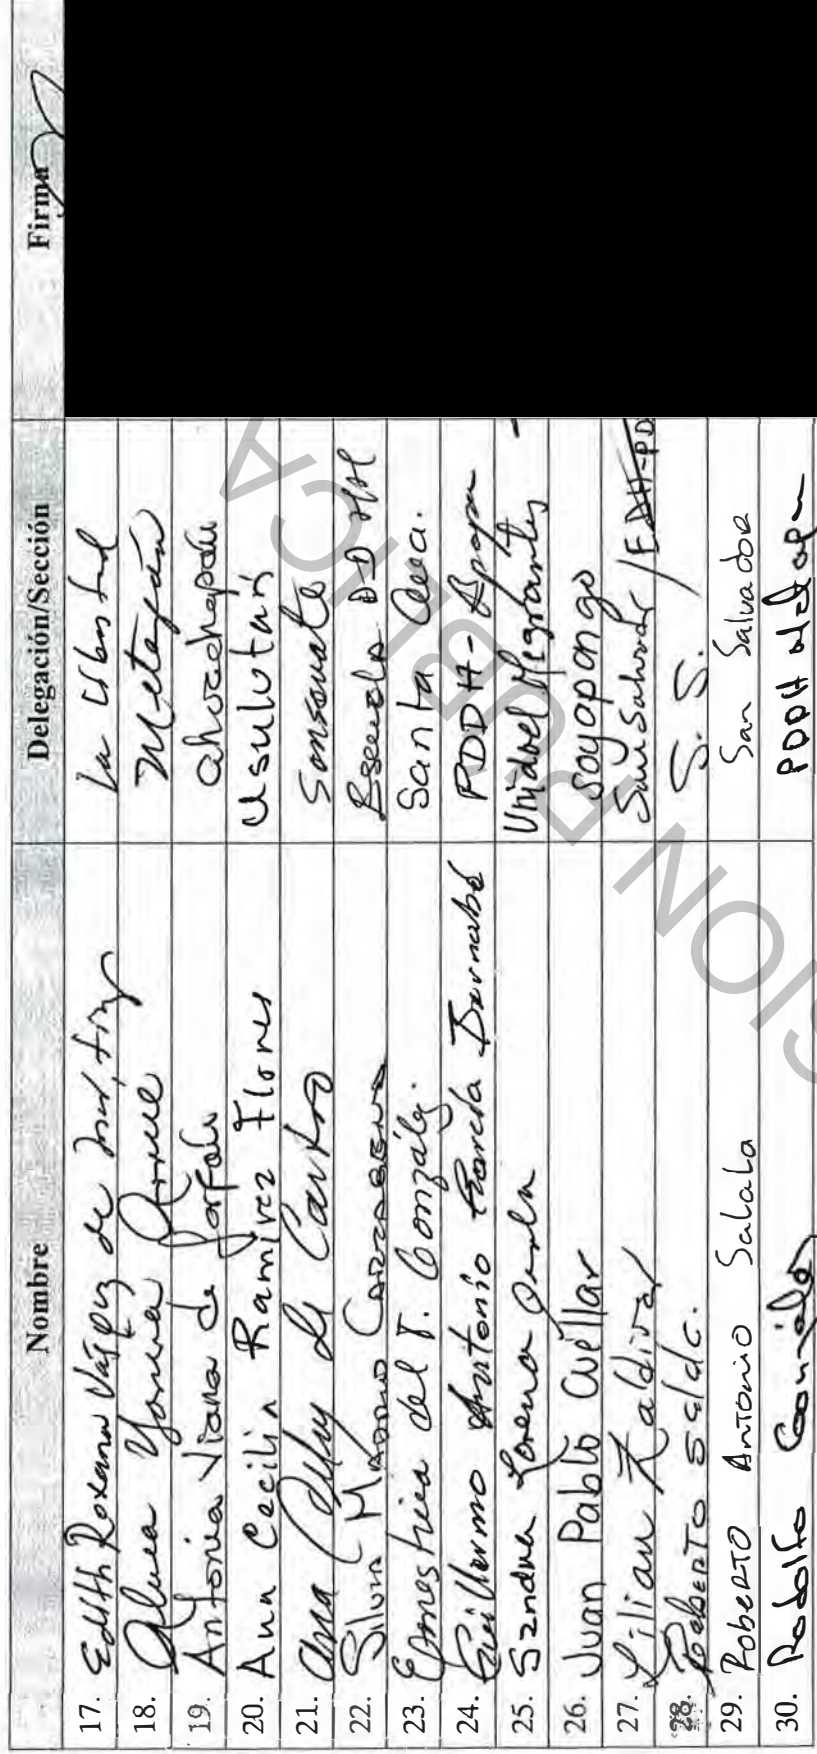 Nombre Delegación/Sección Firma
17. Edith Roxana Vásquez de La Libertad
18. Yanira Metapán
19. Antonia Viana de Ahuachapán
20. Ana Cecilia Ramírez Flores Usulután
21. Ana de Castro Sonsonate
22. Silvia Escuela DD HH
23. del T. González. Santa Ana.
24. Guillermo Antonio García Bernabé PDDH- Apopa
25. Sandra Lorena Unidad Migrantes -
26. Juan Pablo Cuéllar Soyapango
27. Lilian Zaldívar San Salvador /
28. Roberto S. S.
29. Roberto Antonio Salala San Salvador
30. Rodolfo PDDH
SION PUBLICA